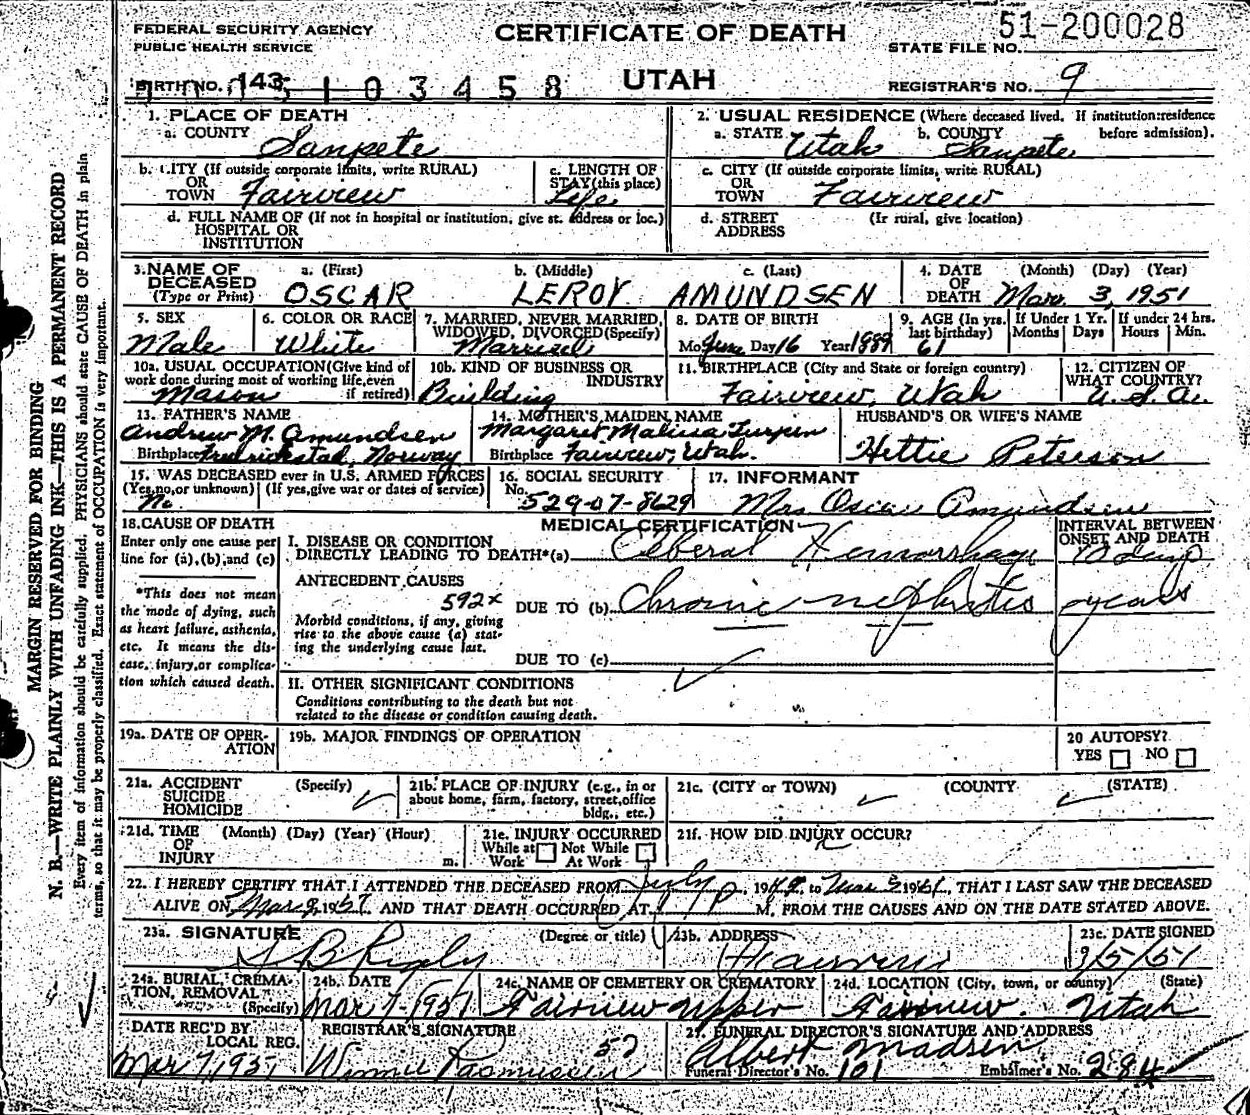 FEDERAL SECURITY AGENCY
PUBLIC HEALTH SERVICE
CERTIFICATE OF DEATH
51-200028
STATE FILE NO.
BIRTH NO. 143
103458
UTAH
REGISTRAR'S NO. 9
MARGIN RESERVED FOR BINDING
N. B.—WRITE PLAINLY WITH UNFADING INK—THIS IS A PERMANENT RECORD
Every item of information should be carefully supplied. PHYSICIANS should state CAUSE OF DEATH in plain
terms, so that it may be properly classified. Exact statement of OCCUPATION is very important.
1. PLACE OF DEATH
a. COUNTY Sanpete
2. USUAL RESIDENCE (Where deceased lived. If institution:residence
before admission).
a. STATE Utah b. COUNTY Sanpete
b. CITY (If outside corporate limits, write RURAL)
OR
TOWN Fairview
c. LENGTH OF
STAY (this place)
Life
c. CITY (If outside corporate limits, write RURAL)
OR
TOWN Fairview
d. FULL NAME OF (If not in hospital or institution, give st. address or loc.)
HOSPITAL OR
INSTITUTION
d. STREET (Ir rural, give location)
ADDRESS
3. NAME OF
DECEASED
(Type or Print)
a. (First) b. (Middle) c. (Last)
OSCAR LEROY AMUNDSEN
4. DATE (Month) (Day) (Year)
OF
DEATH Mar. 3, 1951
5. SEX
Male
6. COLOR OR RACE
White
7. MARRIED, NEVER MARRIED,
WIDOWED, DIVORCED (Specify)
Married
8. DATE OF BIRTH
Mo. June Day 16 Year 1889
9. AGE (In yrs.
last birthday)
61
If Under 1 Yr.
Months Days
If under 24 hrs.
Hours Min.
10a. USUAL OCCUPATION (Give kind of
work done during most of working life, even
if retired)
Mason
10b. KIND OF BUSINESS OR
INDUSTRY
Building
11. BIRTHPLACE (City and State or foreign country)
Fairview, Utah
12. CITIZEN OF
WHAT COUNTRY?
U. S. A.
13. FATHER'S NAME
Andrew M. Amundsen
Birthplace Fredrickstad, Norway
14. MOTHER'S MAIDEN NAME
Margaret Malissa Turpin
Birthplace Fairview, Utah.
HUSBAND'S OR WIFE'S NAME
Hettie Peterson
15. WAS DECEASED ever in U.S. ARMED FORCES
(Yes, no, or unknown) (If yes, give war or dates of service)
No.
16. SOCIAL SECURITY
No. 529-07-8629
17. INFORMANT
Mrs Oscar Amundsen
18. CAUSE OF DEATH
Enter only one cause per
line for (a), (b), and (c)
*This does not mean
the mode of dying, such
as heart failure, asthenia,
etc. It means the dis-
ease, injury, or complica-
tion which caused death.
MEDICAL CERTIFICATION
I. DISEASE OR CONDITION
DIRECTLY LEADING TO DEATH*(a) Cerberal Hemorrhage
INTERVAL BETWEEN
ONSET AND DEATH
days
ANTECEDENT CAUSES
592x
DUE TO (b) Chronic nephritis
years
Morbid conditions, if any, giving
rise to the above cause (a) stat-
ing the underlying cause last.
DUE TO (c)
II. OTHER SIGNIFICANT CONDITIONS
Conditions contributing to the death but not
related to the disease or condition causing death.
19a. DATE OF OPER-
ATION
19b. MAJOR FINDINGS OF OPERATION
20 AUTOPSY?
YES NO
21a. ACCIDENT (Specify)
SUICIDE
HOMICIDE
21b. PLACE OF INJURY (e.g., in or
about home, farm, factory, street, office
bldg., etc.)
21c. (CITY or TOWN) (COUNTY) (STATE)
21d. TIME (Month) (Day) (Year) (Hour)
OF
INJURY m.
21e. INJURY OCCURRED
While at Not While
Work At Work
21f. HOW DID INJURY OCCUR?
22. I HEREBY CERTIFY THAT I ATTENDED THE DECEASED FROM July 1949, to Mar 3 1951, THAT I LAST SAW THE DECEASED
ALIVE ON Mar 1951 AND THAT DEATH OCCURRED AT 1 P M, FROM THE CAUSES AND ON THE DATE STATED ABOVE.
23a. SIGNATURE (Degree or title)
23b. ADDRESS
Fairview
23c. DATE SIGNED
3/5/51
24a. BURIAL, CREMA-
TION, REMOVAL
(Specify)
24b. DATE
Mar 7-1951
24c. NAME OF CEMETERY OR CREMATORY
Fairview Upper
24d. LOCATION (City, town, or county) (State)
Fairview. Utah
DATE REC'D BY
LOCAL REG.
Mar 7, 1951
REGISTRAR'S SIGNATURE
Winnie Rasmussen 52
25. FUNERAL DIRECTOR'S SIGNATURE AND ADDRESS
Albert Madsen
Funeral Director's No. 101 Embalmer's No. 284